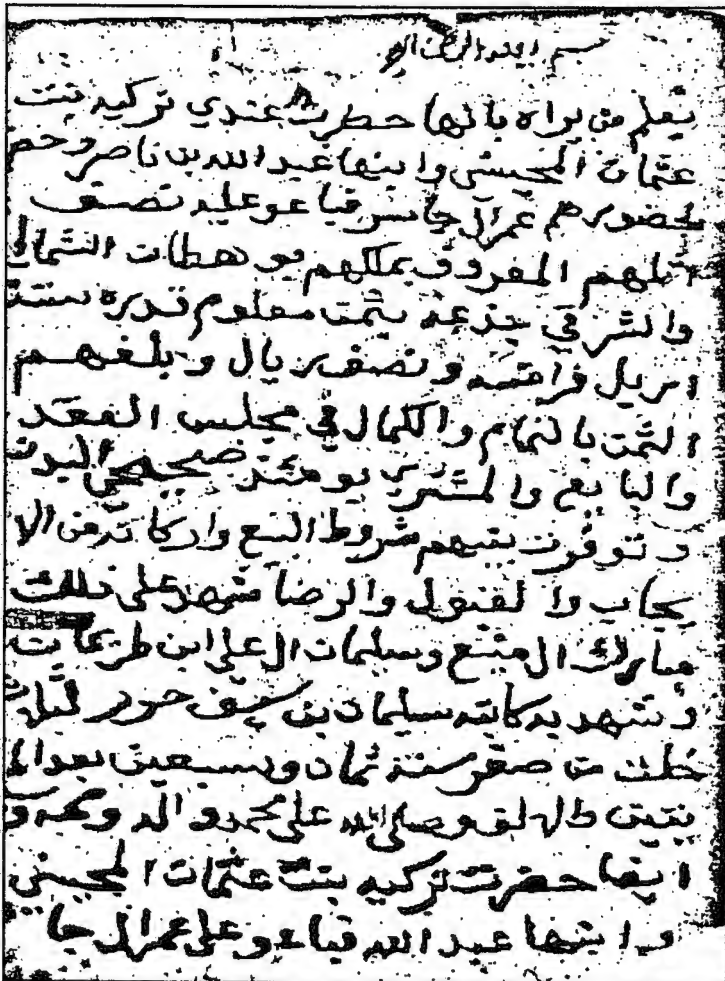 بسم الله الرحمن الرحيم
يعلم من يراه بانها حظرت عندي تركيه بنت
عثمان المحيسني وابنها عبدالله بن ناصر وحضر
لحضورهم عمر ال جاسر فباعو عليه نصف
اثلهم المعروف بملكهم الشمالي
والشرقي بثمن معلوم قدره ستة
اريل فرانسه ونصف ريال وبلغهم
الثمن بالتمام والكمال في مجلس العقد
والبايع والمشتري يومئذ صحيحي البدن
وتوفرت بينهم شروط البيع واركانه من الا
يجاب والقبول والرضا شهد على ذلك
مبارك ال وسليمان ال علي ابن
وشهد به كاتبه سليمان بن سيف حرر
خلت من صفر سنة ثمان وتسعين بعد الما
تين والالف وصلى الله على محمد واله وصحبه و
ايضا حضرت تركيه بنت عثمان المحيسني
وابنها عبدالله فباعو على عمر ال جا